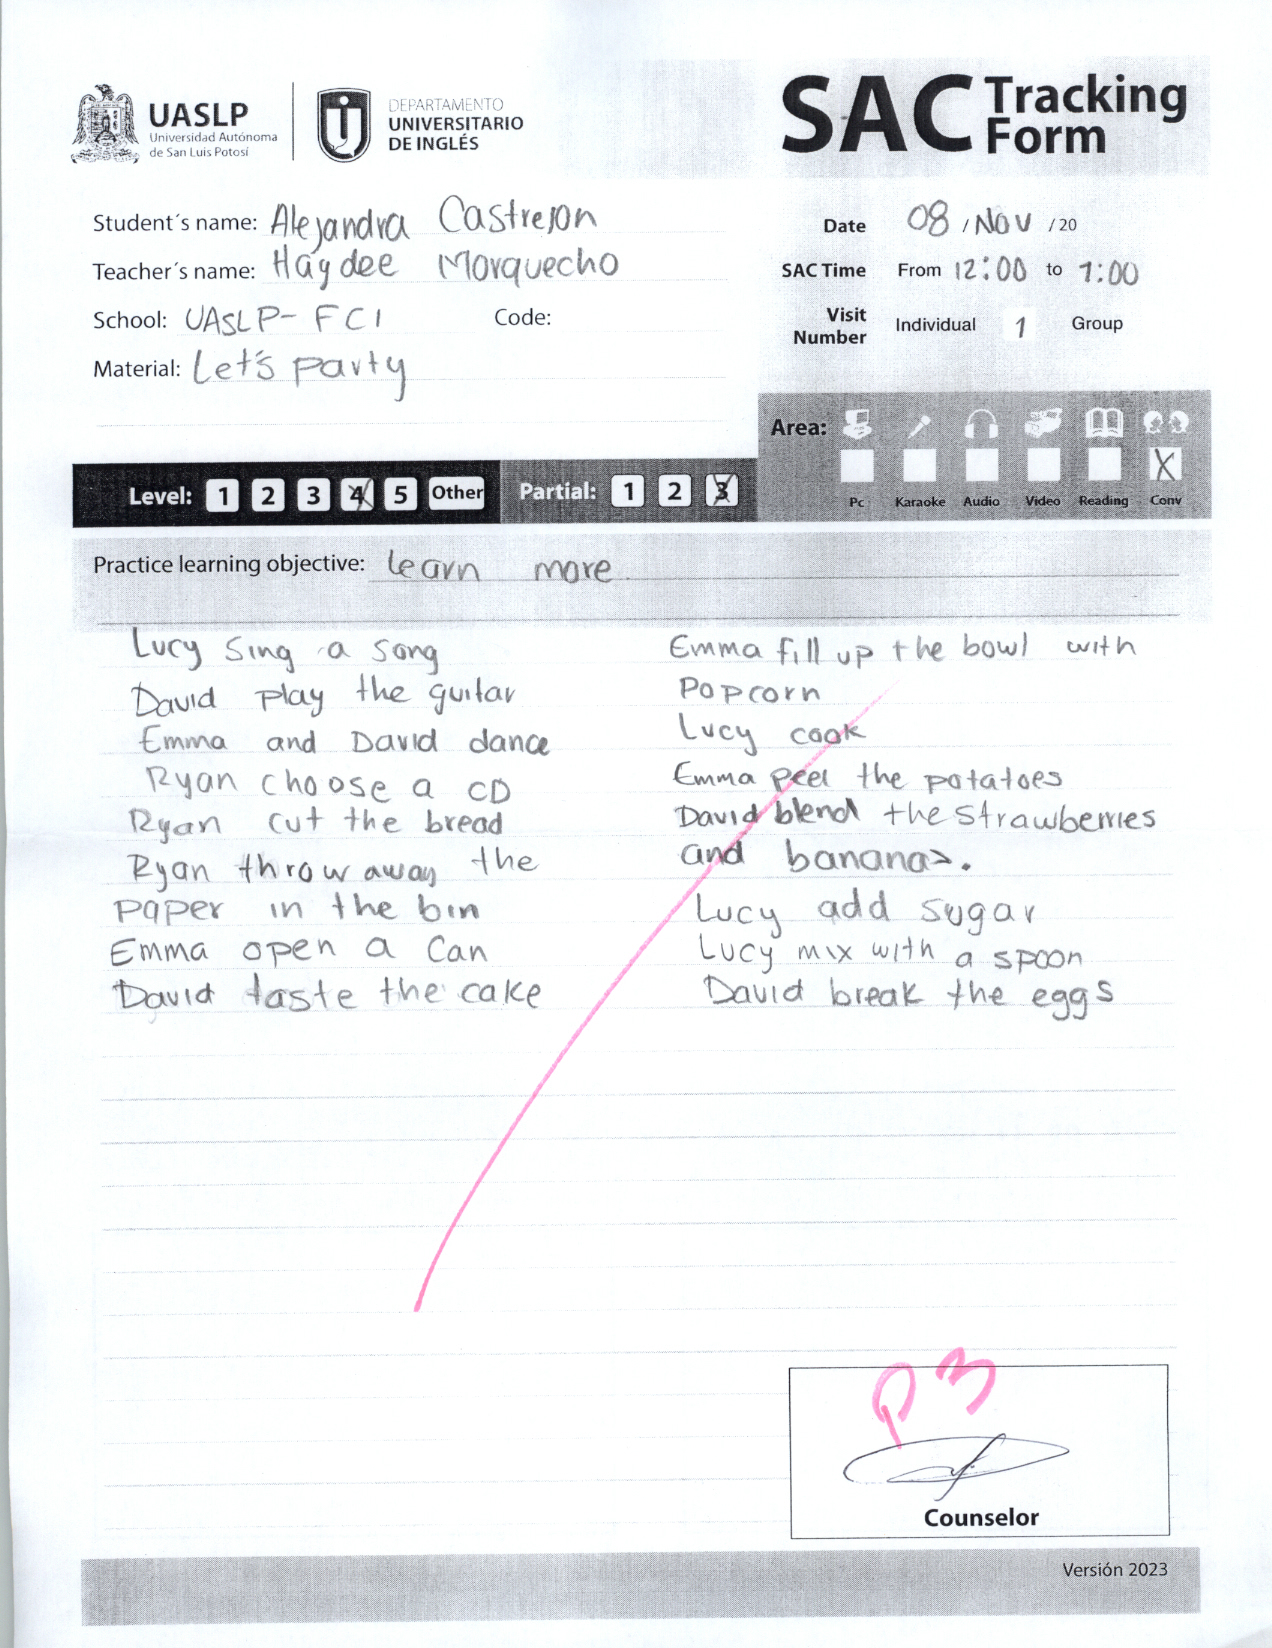 UASLP
Universidad Autónoma
de San Luis Potosí
DEPARTAMENTO
UNIVERSITARIO
DE INGLÉS
SAC Tracking
Form
Student´s name: Alejandra Castrejon
Teacher´s name: Haydee Morquecho
School: UASLP-FCI Code:
Material: Let's party
Date 08 / Nov / 20
SAC Time From 12:00 to 1:00
Visit
Number Individual 1 Group
Area:
Pc Karaoke Audio Video Reading Conv
X
Level: 1 2 3 4 5 Other
Partial: 1 2 3
Practice learning objective: learn more
Lucy sing a song
David play the guitar
Emma and David dance
Ryan choose a CD
Ryan cut the bread
Ryan throw away the
paper in the bin
Emma open a can
David taste the cake
Emma fill up the bowl with
Popcorn
Lucy cook
Emma peel the potatoes
David blend the strawberries
and bananas.
Lucy add sugar
Lucy mix with a spoon
David break the eggs
P3
Counselor
Versión 2023